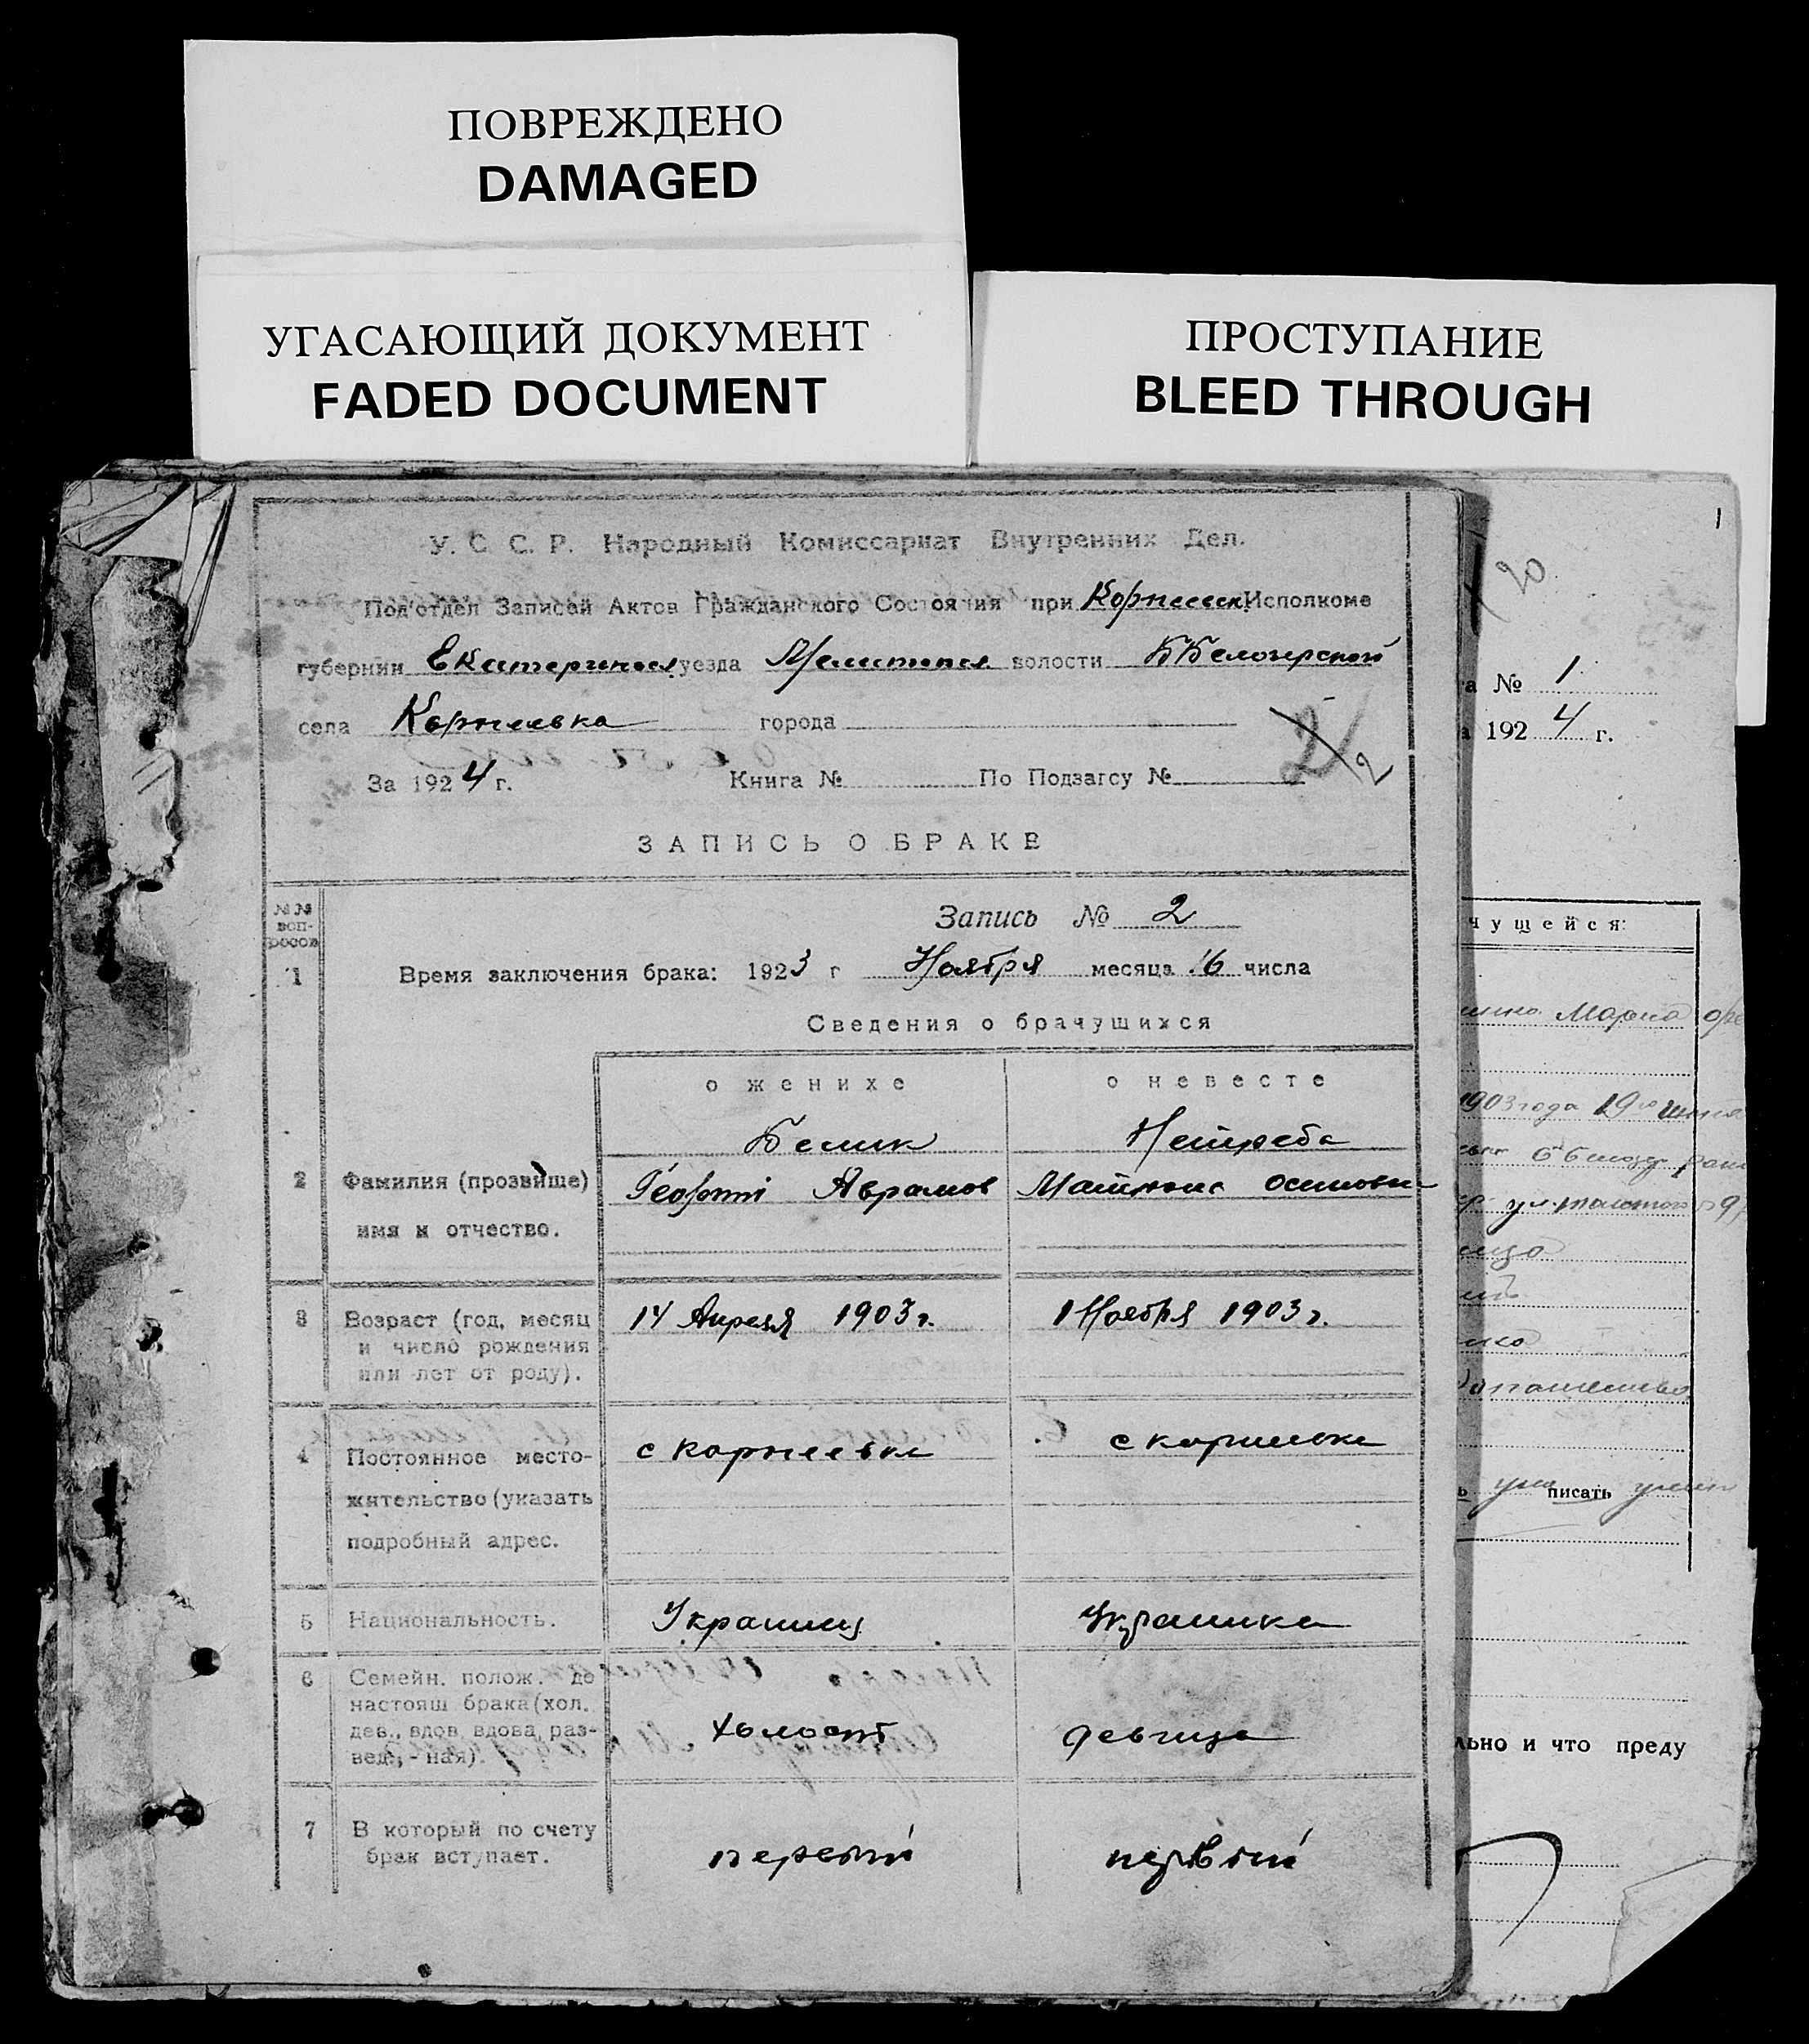 ПОВРЕЖДЕНО
DAMAGED
УГАСАЮЩИЙ ДОКУМЕНТ
FADED DOCUMENT
ПРОСТУПАНИЕ
BLEED THROUGH
У. С. С. Р. Народный Комиссариат Внутренних Дел.
Под'отдел Записей Актов Гражданского Состояния при Корнеевск. Исполкоме
губернии Екатериносл. уезда Мелитопол. волости ББелозерской
села Корнеевка города
За 1924 г. Книга № По Подзагсу №
2
ЗАПИСЬ О БРАКЕ
№№ воп-росов
Запись № 2
1 Время заключения брака: 1923 г Ноября месяца 16 числа
Сведения о брачущихся
о женихе о невесте
Белик Нетреба
2 Фамилия (прозвище) Аврамов Матрона Осиповн
имя и отчество.
3 Возраст (год, месяц 14 Апреля 1903 г. 1 Ноября 1903 г.
и число рождения
или лет от роду).
4 Постоянное место- с Корнеевка с Корнеевка
жительство (указать
подробный адрес.
5 Национальность. Украинец Украинка
6 Семейн. полож. до
настоящ брака (хол.
дев., вдов, вдова, раз- холост девица
вед., - ная).
7 В который по счету первый первый
брак вступает.
1
20
а № 1
а 1924 г.
чущейся:
Мария
1903 года 19го
ь писать
льно и что преду